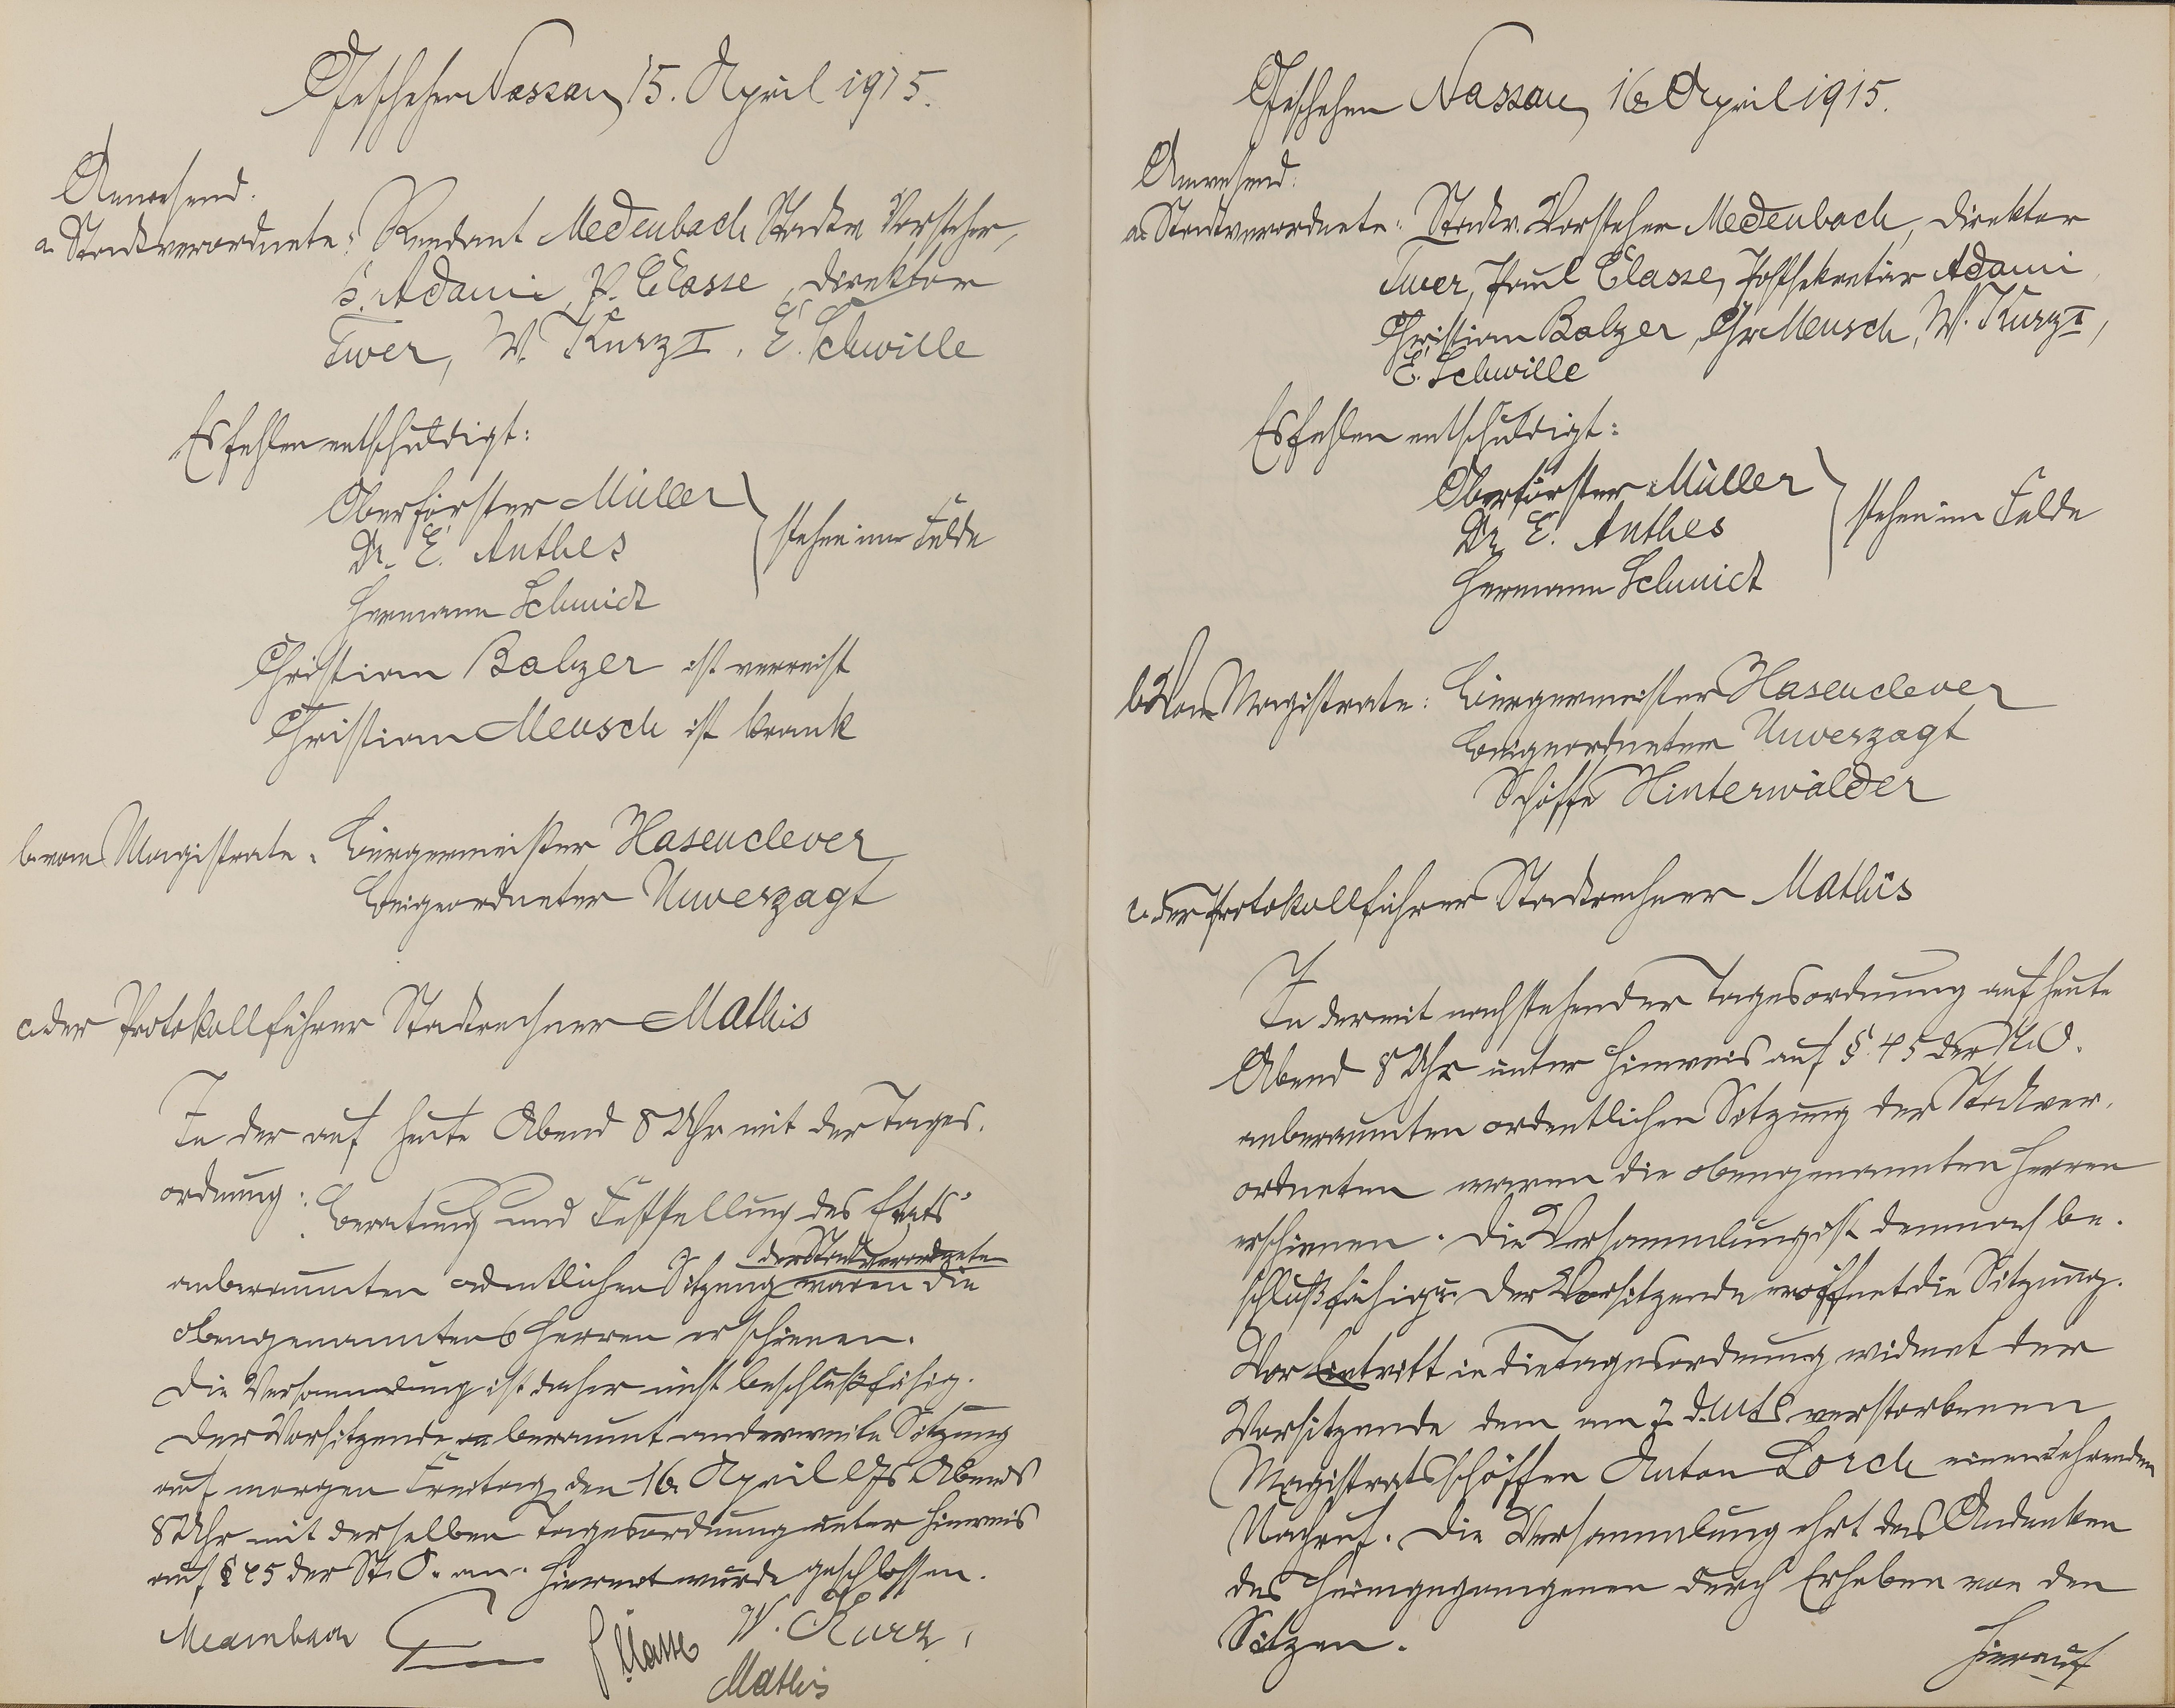 Geschehen Nassau, 15. April 1915.
Anwesend:
a. Stadtverordnete: Rendant Medenbach Stadtv. Vorsteher,
H. Adami, P. Classe, Direktor
Twer, W. Kurz I, E. Schwille
Es fehlen entschuldigt:
Oberförster Müller
Dr. E. Anthes
stehen im Felde
Hermann Schmidt
Christian Balzer ist verreist
Christian Meusch ist krank
b. vom Magistrate: Bürgermeister Hasenclever
Beigeordneter Unverzagt
c. der Protokollführer Stadtrechner Mathis
In der auf heute Abend 8 Uhr mit der Tages-
ordnung: Beratung und Feststellung des Etats
der Stadtverordneten
anberaumten ordentlichen Sitzung waren die
obengenannten 6 Herren erschienen.
Die Versammlung ist daher nicht beschlußfähig.
Der Vorsitzende anberaumt anderweite Sitzung
auf morgen Freitag, den 16. April d. Js. Abends
8 Uhr mit derselben Tagesordnung unter Hinweis
auf § 45 der St. O. an. Hiermit wurde geschlossen.
Medenbach P Classe W. Kurz I
Mathis
Geschehen Nassau, 16. April 1915.
Anwesend:
a. Stadtverordnete: Stadtv. Vorsteher Medenbach, Direktor
Twer, Paul Classe, Postsekretär Adami,
Christian Balzer, Chr. Meusch, W. Kurz I,
E. Schwille
Es fehlen entschuldigt:
Oberförster Müller
Dr. E. Anthes
stehen im Felde
Hermann Schmidt
b. Vom Magistrate: Bürgermeister Hasenclever
Beigeordneter Unverzagt
Schöffe Hinterwälder
c. der Protokollführer Stadtrechner Mathis
In der mit nachstehender Tagesordnung auf heute
Abend 8 Uhr unter Hinweis auf § 45 der St. O.
anberaumten ordentlichen Sitzung der Stadtver-
ordneten waren die obengenannten Herren
erschienen. Die Versammlung ist demnach be-
schlußfähig. Der Vorsitzende eröffnet die Sitzung.
Vor Eintritt in die Tagesordnung widmet der
Vorsitzende dem am 7. d. Mts verstorbenen
Magistratsschöffen Anton Lorch einen ehrenden
Nachruf. Die Versammlung ehrt das Andenken
des Heimgegangenen durch Erheben von den
Sitzen.
Hierauf